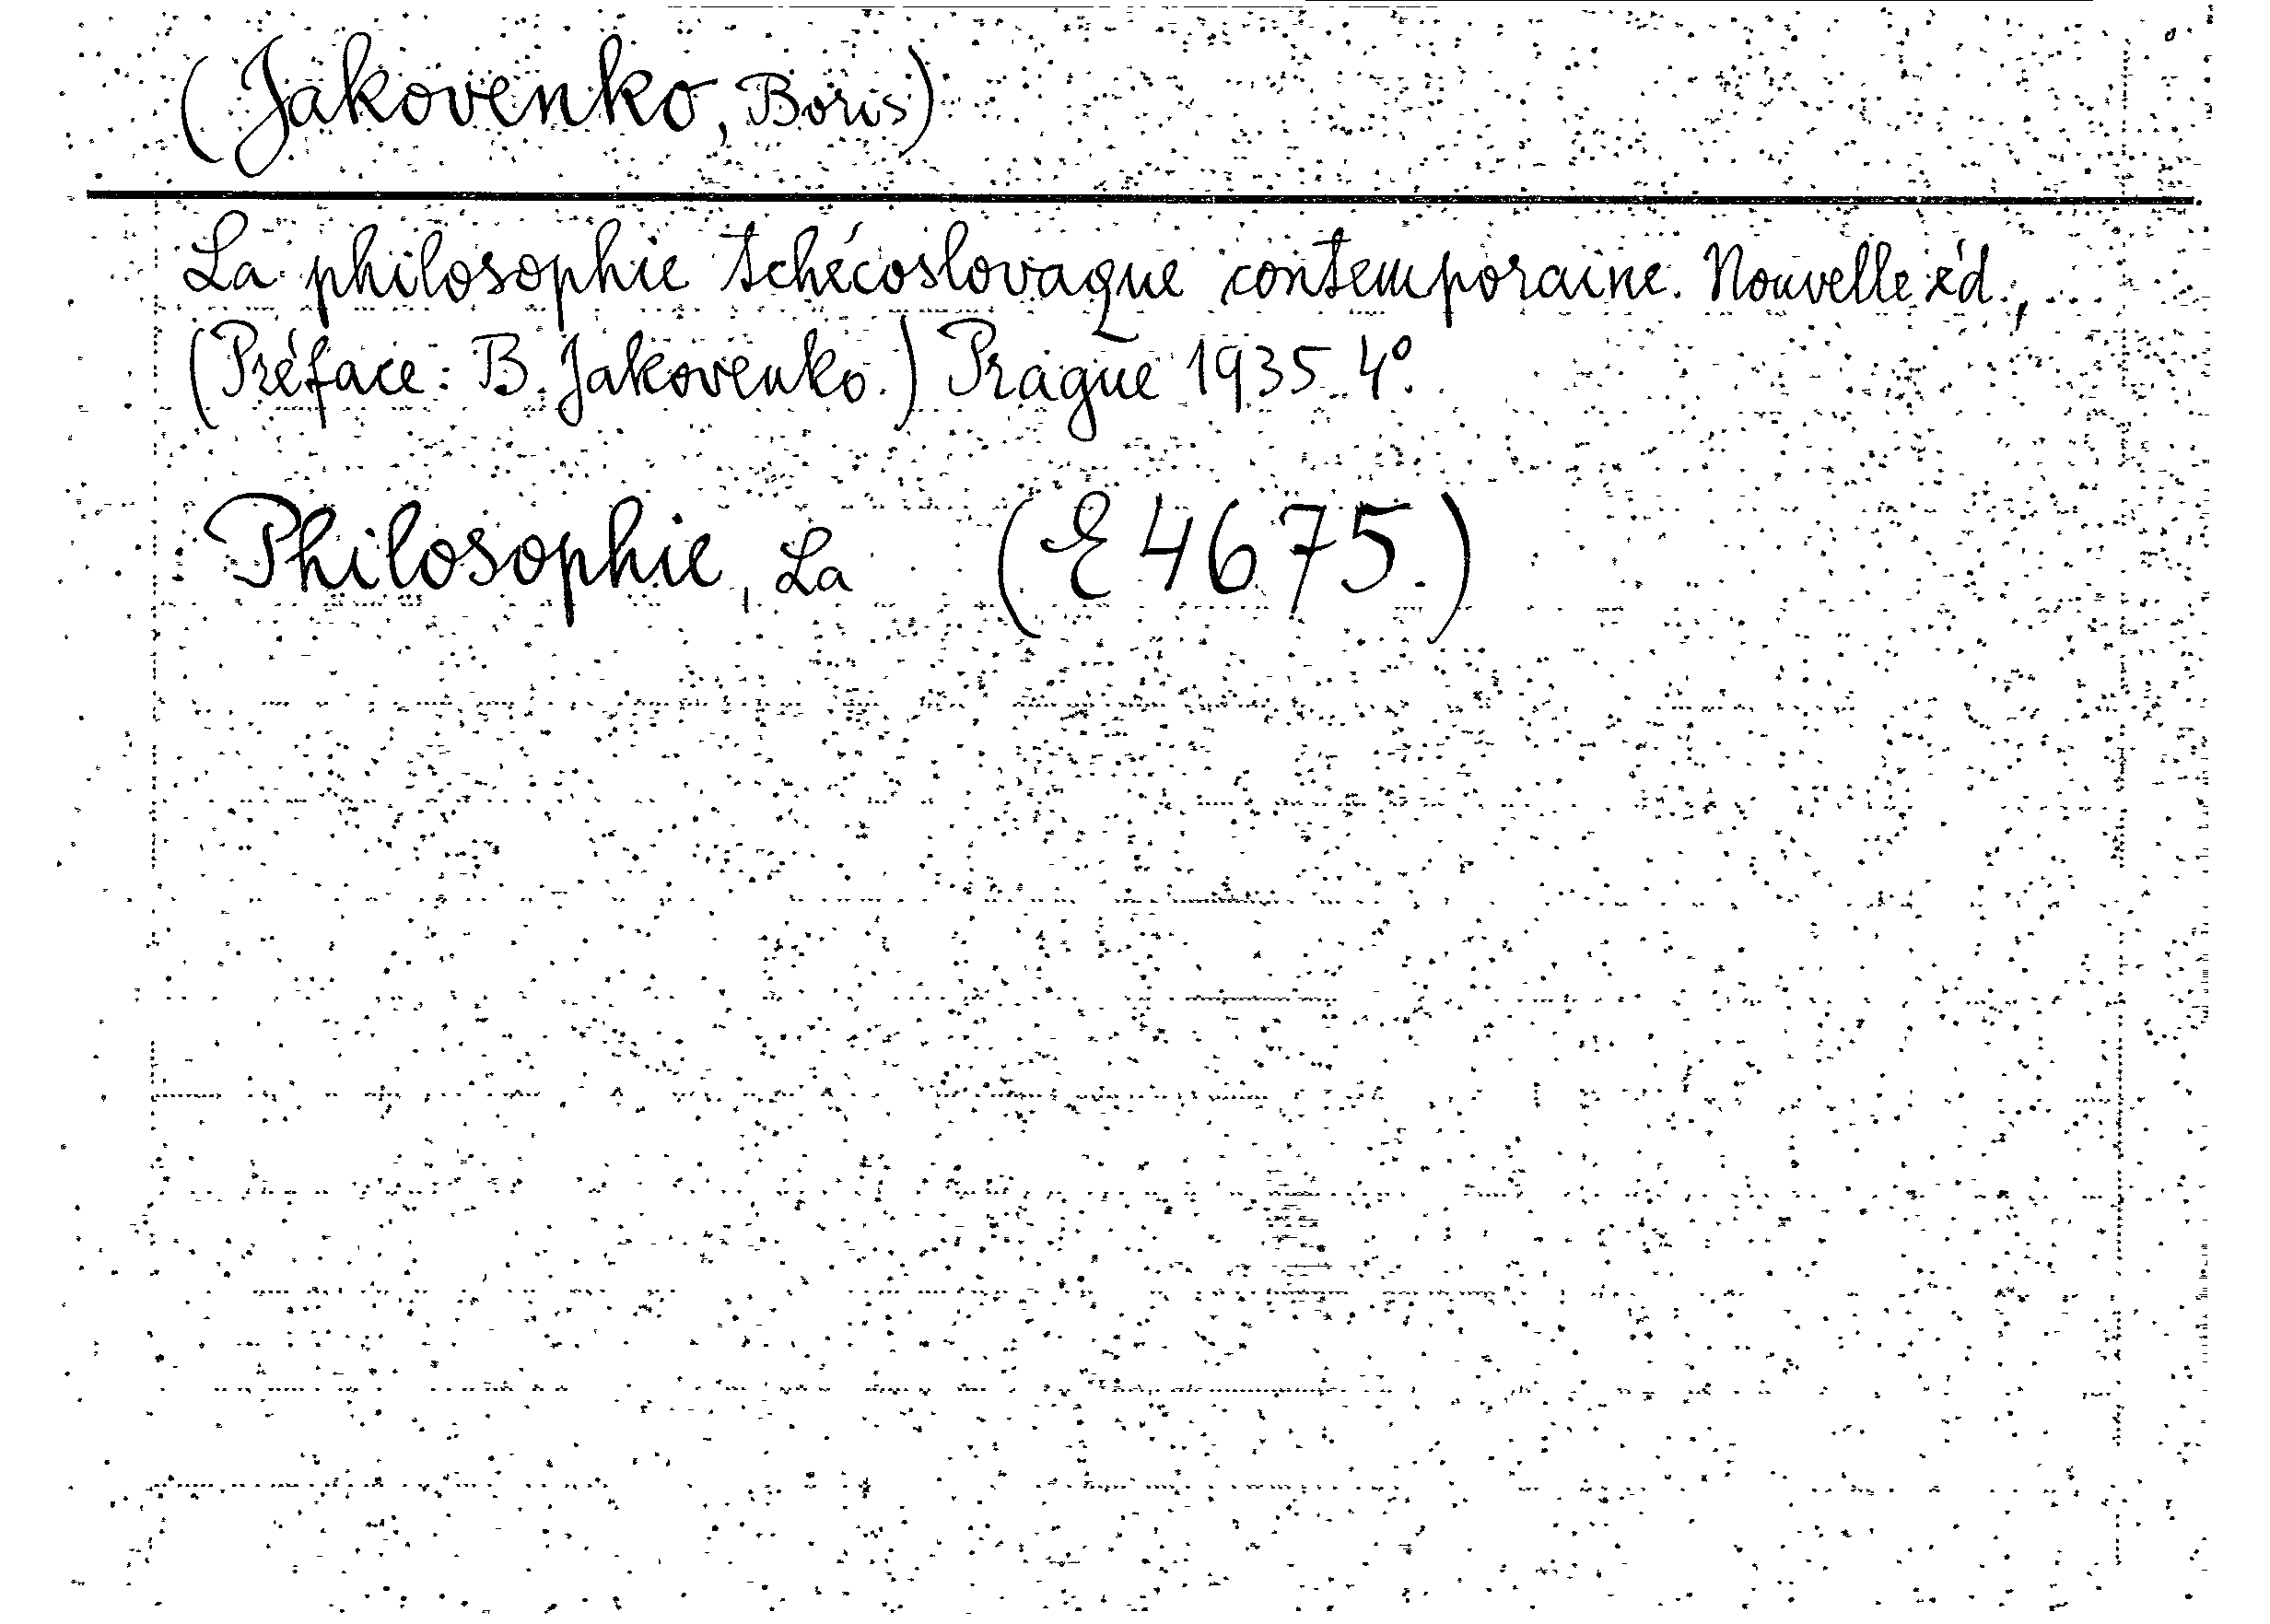 (Jakovenko, Boris)
La philosophie tchécoslovaque contemporaine. Nouvelle éd., ...
(Préface: B. Jakovenko.) Prague 1935. 4°.
Philosophie, La (E 4675.)